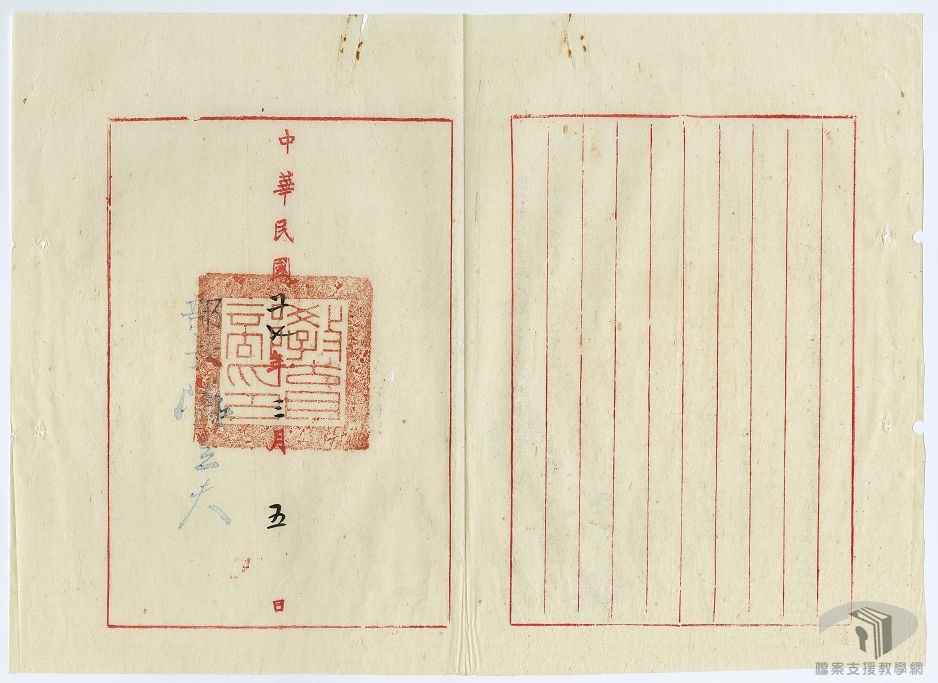 中華民國廿七年三月五日
部長陳立夫
檔案支援教學網